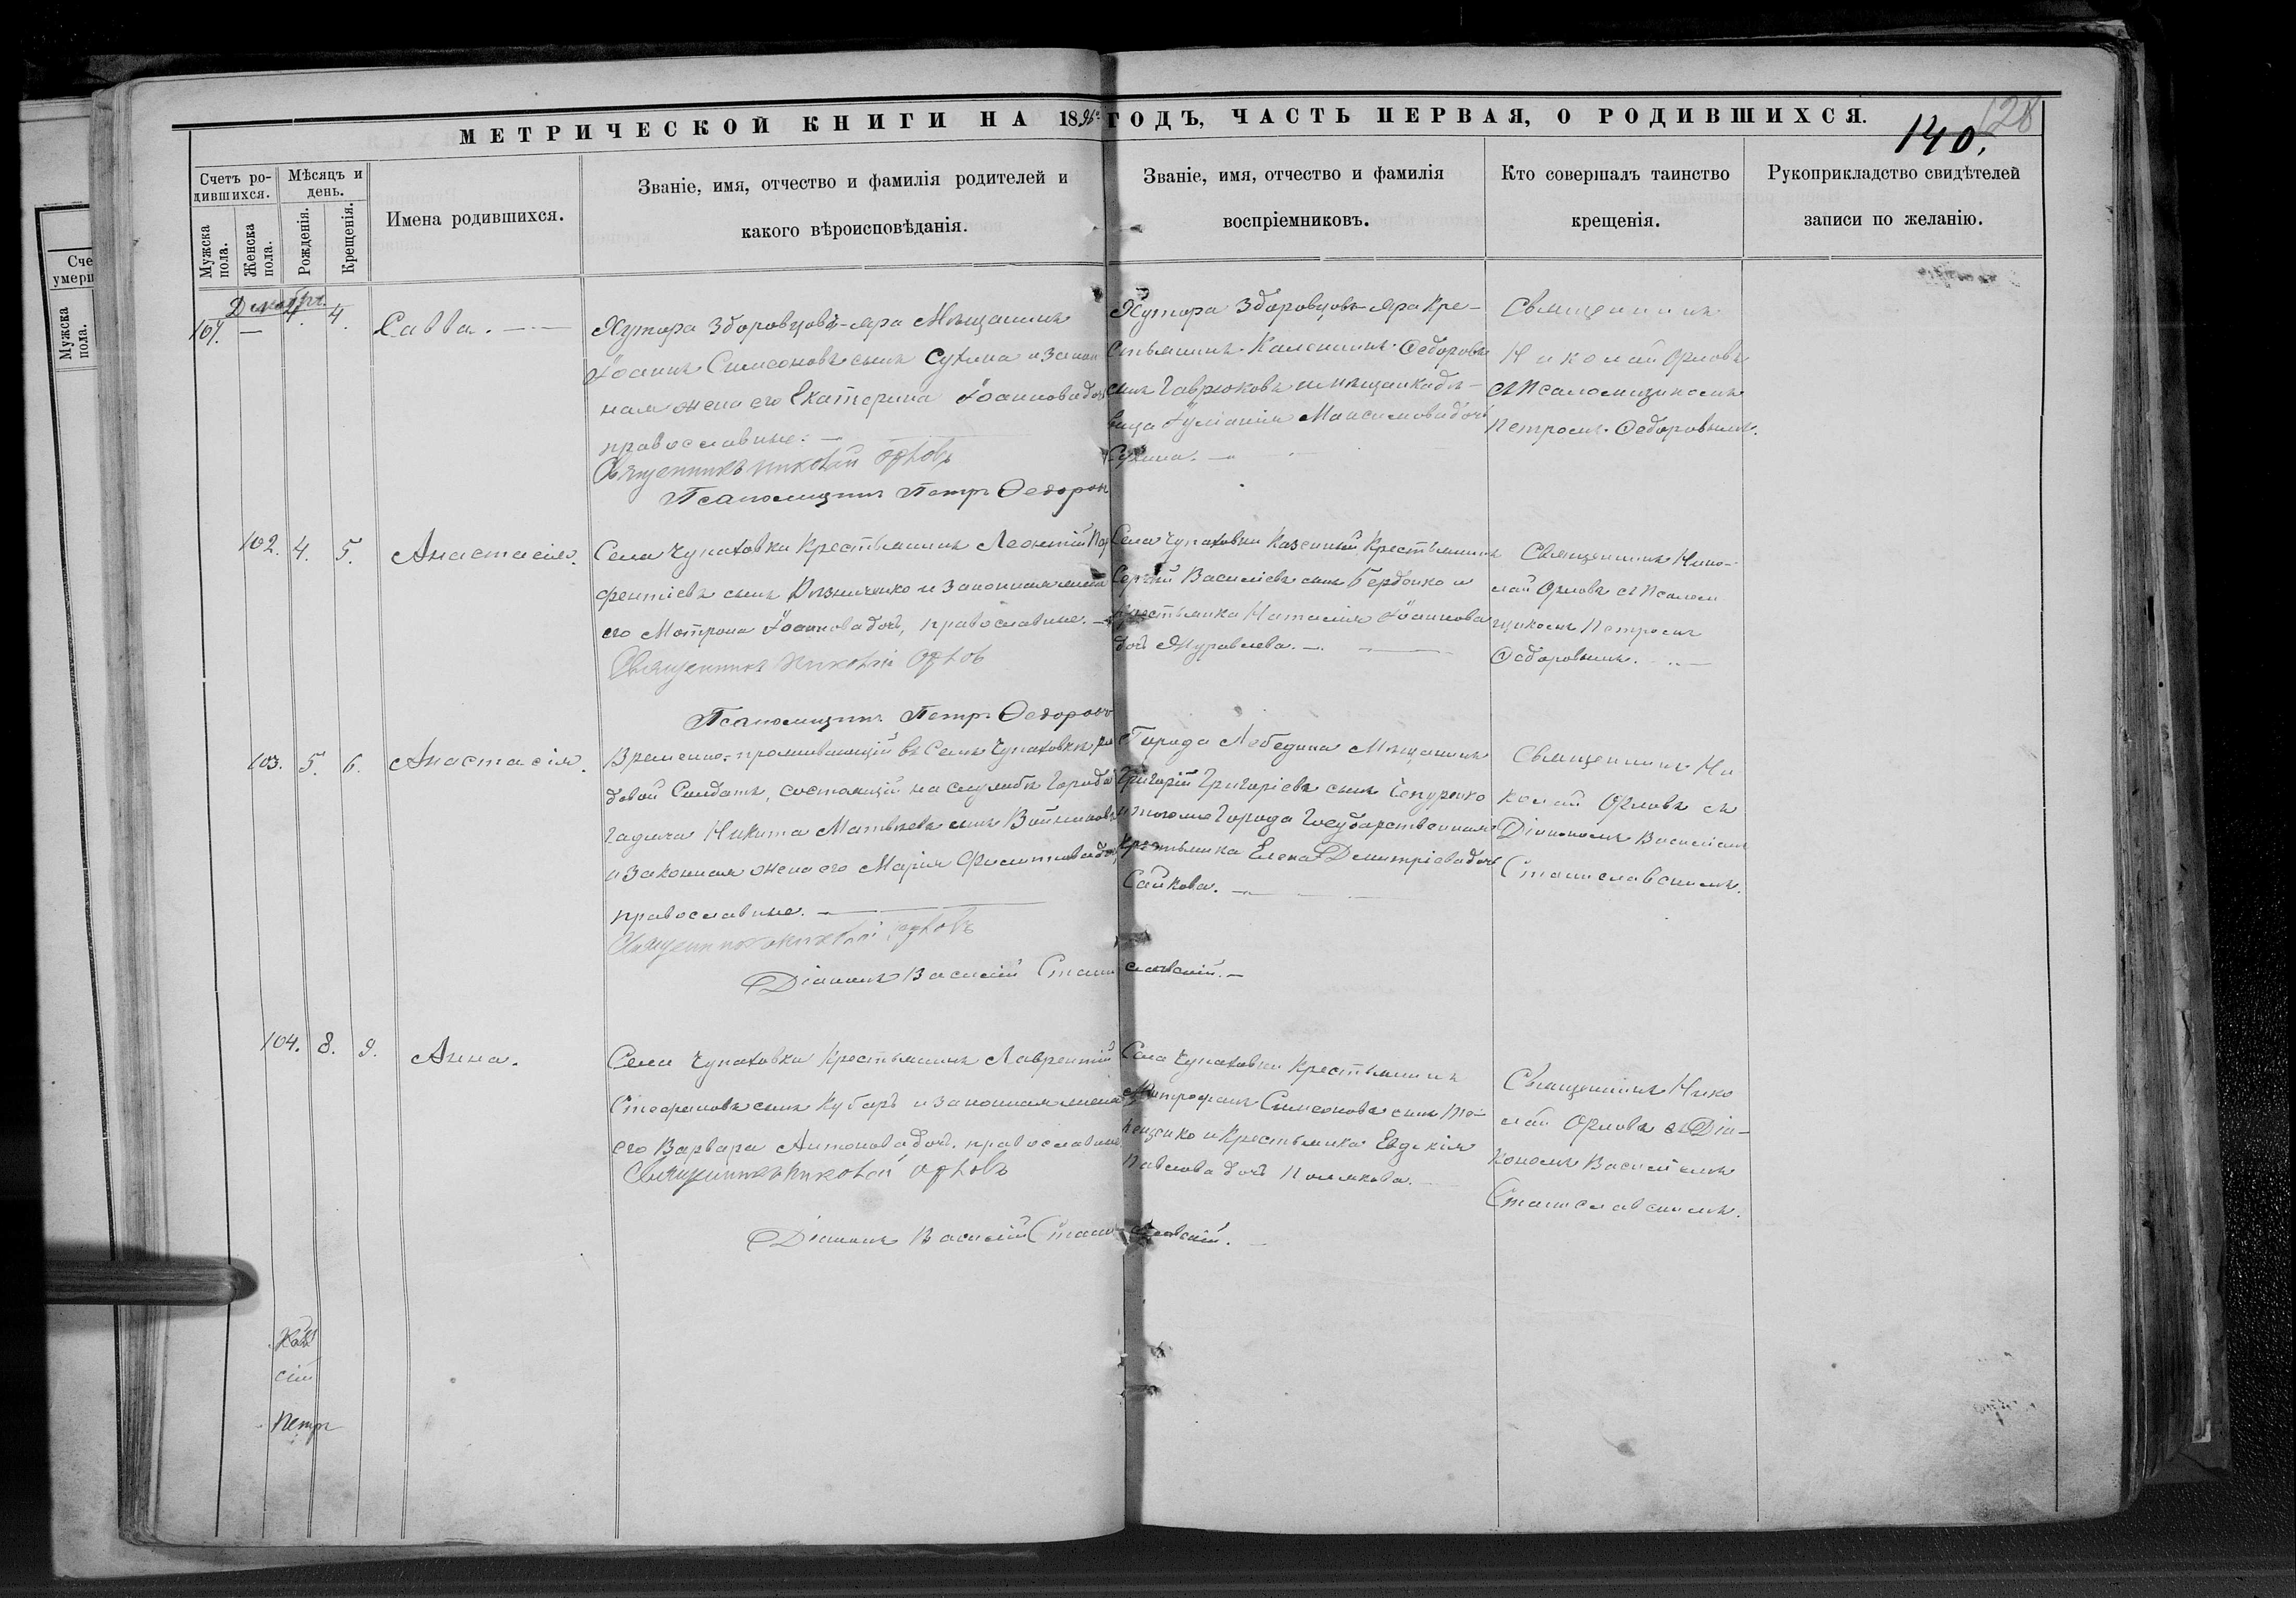 МЕТРИЧЕСКОЙ КНИГИ НА 1896 ГОДЪ, ЧАСТЬ ПЕРВАЯ, О РОДИВШИХСЯ.
128
140.
Счетъ родившихся.
Мужска пола.
Женска пола.
Мѣсяцъ и день.
Рожденія.
Крещенія.
Имена родившихся.
Званіе, имя, отчество и фамилія родителей и
какого вѣроисповѣданія.
Званіе, имя, отчество и фамилія
воспріемниковъ.
Кто совершалъ таинство
крещенія.
Рукоприкладство свидѣтелей
записи по желанію.
Декабрь.
101. — 4. 4. Савва.
Хутора Здоровцовъ-яра Мѣщанинъ
Іоаннъ Симеоновъ сынъ Сухина и закон
ная жена его Екатерина Іоаннова дочь
православные.
Священникъ Николай Орловъ
Псаломщикъ Петръ Ѳедоровъ
Хутора Здоровцовъ-яра Кре-
стьянинъ Ѳедоровъ
сынъ Гавріковъ и мѣщанка дѣ-
вица Іуліанія Максимова дочь
Сухина.
Священникъ
Николай Орловъ
съ Псаломщикомъ
Петромъ Ѳедоровымъ.
102. 4. 5. Анастасія.
Села Чупаховки Крестьянинъ Леонтій
сынъ и законная жена
его Матрона Іоаннова дочь, православные.
Священникъ Николай Орловъ
Псаломщикъ Петръ Ѳедоровъ
Села Чупаховки Казенный Крестьянинъ
Сергѣй Василіевъ сынъ и
Крестьянка Наталія Іоаннова
дочь Журавлева.
Священникъ Нико-
лай Орловъ съ Псалом
щикомъ Петромъ
Ѳедоровымъ.
103. 5. 6. Анастасія.
Временно-проживающій въ Селѣ Чупаховкѣ ря
довой Солдатъ, состоящій на службѣ Города
Гадяча Никита Матвѣевъ сынъ
и законная жена его Марія Филиппова дочь,
православные.
Священникъ Николай Орловъ
Діаконъ Василій Станиславскій.
Города Лебедина Мѣщанинъ
Григорій Григоріевъ сынъ Чепуренко
и того же Города Государственная
Крестьянка Елена Димитріева дочь
Сайкова.
Священникъ Ни
колай Орловъ съ
Діакономъ Василіемъ
Станиславскимъ.
104. 8. 9. Анна.
Села Чупаховки Крестьянинъ Лаврентій
Стефановъ сынъ Кубарь и законная жена
его Варвара Антонова дочь, православные
Священникъ Николай Орловъ
Діаконъ Василій Станиславскій.
Села Чупаховки Крестьянинъ
Митрофанъ Симеоновъ сынъ
и Крестьянка Евдокія
Павлова дочь Полякова.
Священникъ Нико
лай Орловъ съ Діа-
кономъ Василіемъ
Станиславскимъ.
Петръ
Сче
умерш
Мужска пола.